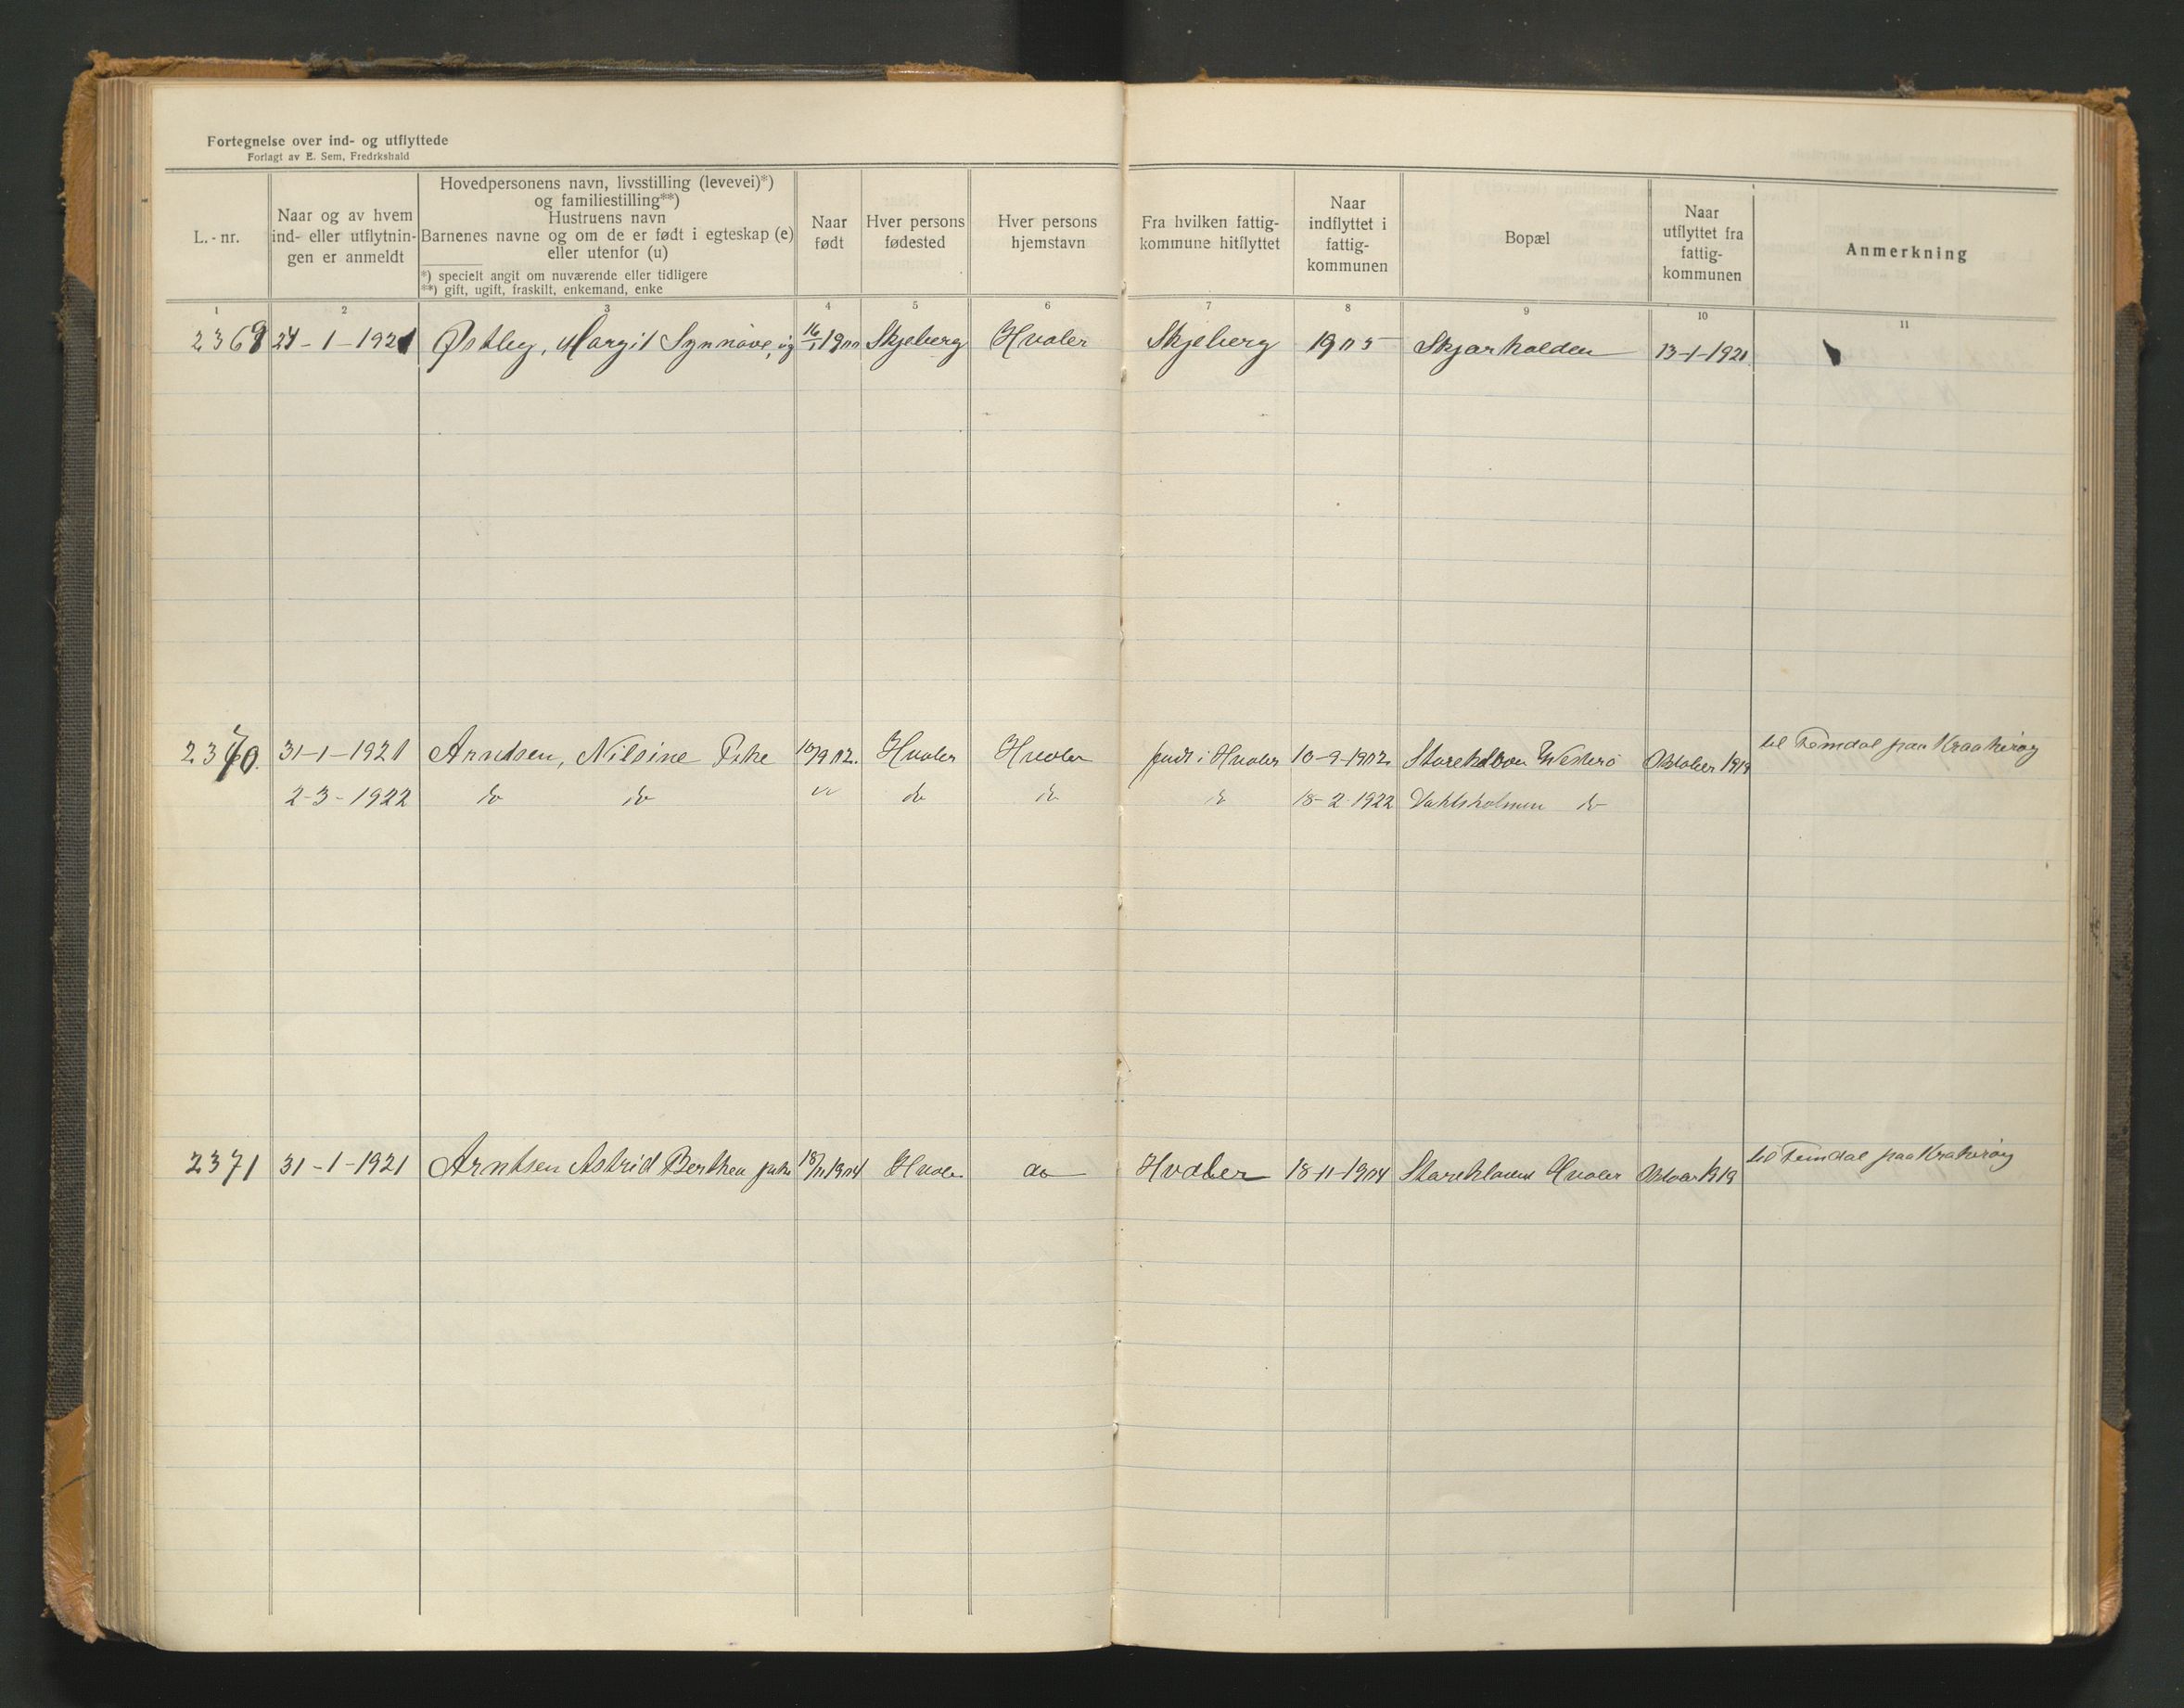 Fortegnelse over ind- og utflyttede
Forlagt av E. Sem, Fredrkshald
L.-nr.
Naar og av hvem
ind- eller utflytnin-
gen er anmeldt
Hovedpersonens navn, livsstilling (levevei)*)
og familiestilling**)
Hustruens navn
Barnenes navne og om de er født i egteskap (e)
eller utenfor (u)
*) specielt angit om nuværende eller tidligere
**) gift, ugift, fraskilt, enkemand, enke
Naar
født
Hver persons
fødested
Hver persons
hjemstavn
Fra hvilken fattig-
kommune hitflyttet
Naar
indflyttet i
fattig-
kommunen
Bopæl
Naar
utflyttet fra
fattig-
kommunen
Anmerkning
1 2 3 4 5 6 7 8 9 10 11
2369 24-1-1921 Østby, Margit Synnöve, ug 16/1 1900 Skjeberg Hvaler Skjeberg 1905 Skjærhalden 13-1-1921
2370. 31-1-1921 Arntsen, Nilsine Pike 10/9 02. Hvaler Hvaler født i Hvaler 10-9-1902 Vesterö Oktober 1919 til Femdal paa Kraakeröy
2-3-1922 do do " do do do 18-2-1922 do
2371 31-1-1921 Arntsen Astrid Berthea pike 18/11 1904 Hvaler do Hvaler 18-11-1904 Hvaler 1919 til Femdal paa Krakeröy